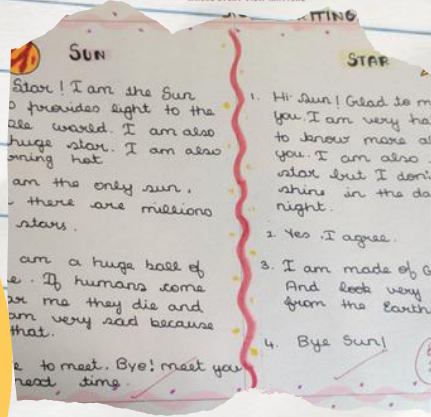 WRITING
SUN
Star! I am the Sun
provides light to the
world. I am also
huge star. I am also
hot
am the only sun.
there are millions
stars.
am a huge ball of
. If humans come
me they die and
am very sad because
that.
to meet. Bye! meet you
next time.
STAR
1. Hi Sun! Glad to m
you. I am very ha
to know more a
you. I am also
star but I don'
shine in the da
night.
2. Yes, I agree.
3. I am made of G
And look very
from the Earth
4. Bye Sun!